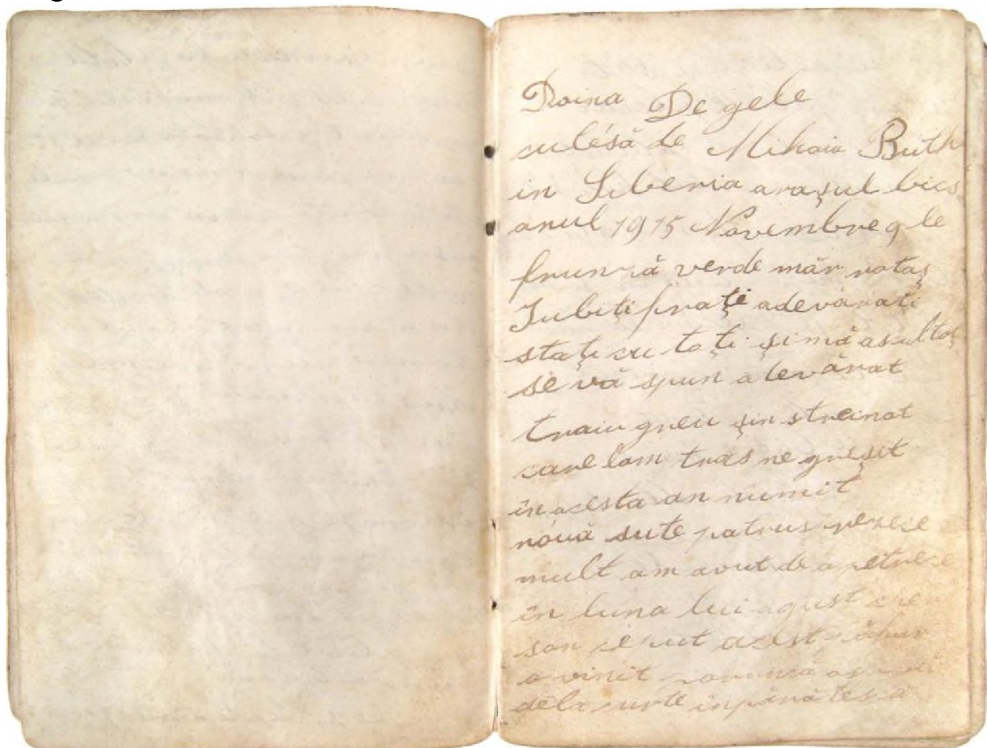 Doina De gele
culésă de Mihaiu Buth
in Siberia arașul bics
anul 1915 Novembre 9 le
frunză verde măr rotaș
Iubiți frați adevărați
stați cu toți și mă ascultaț
se vă spun adevărat
traiu greu șin streinat
care lam tras negreșit
în acesta an numit
nóuă sute patrusprezece
mult am avut de a petrece
în luna lui agust
sau ceput acest
a vinit porunca
dela curte inpărătésca